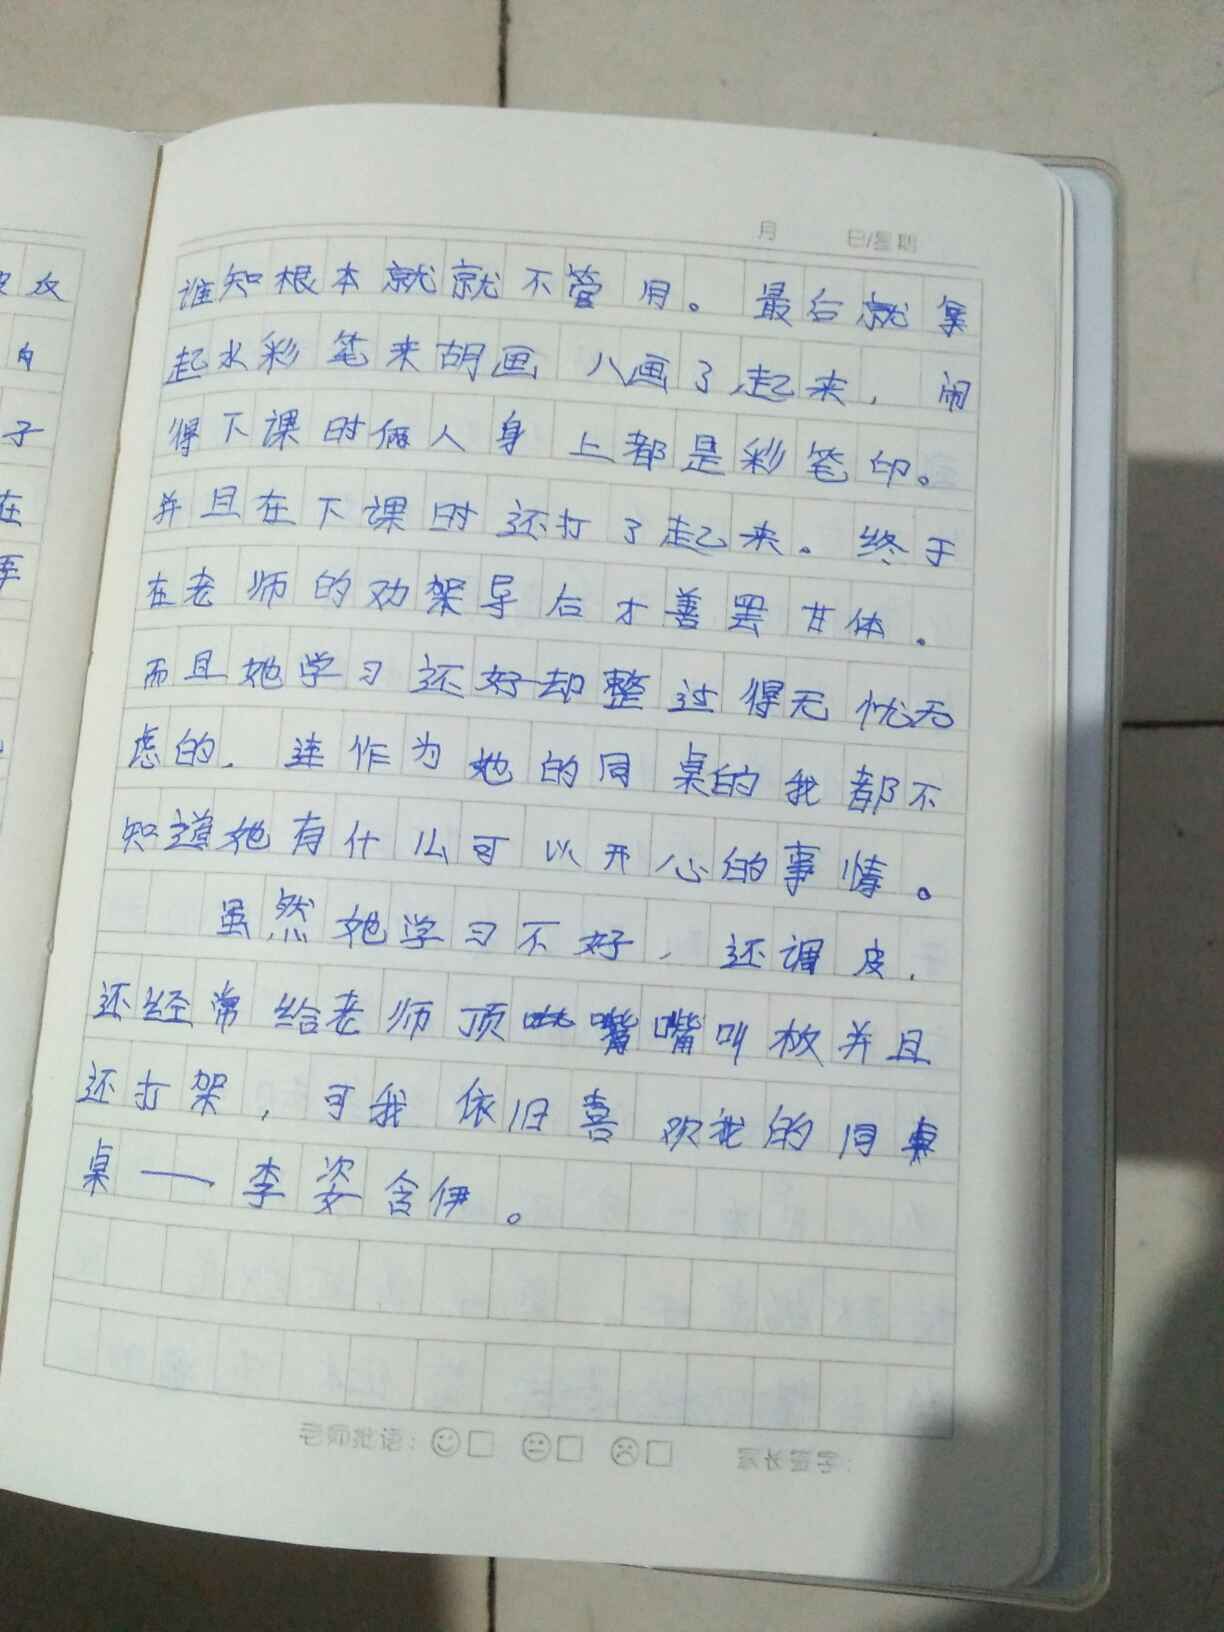 月 日/星期
谁知根本就就不管用。最后就拿
起水彩笔来胡画八画了起来,闹
得下课时俩人身上都是彩笔印。
并且在下课时还打了起来。终于
在老师的劝架导后才善罢甘体。
而且她学习还好却整过得无忧无
虑的,连作为她的同桌的我都不
知道她有什么可以开心的事情。
虽然她学习不好,还调皮,
还经常给老师顶嘴嘴叫板并且
还打架,可我依旧喜欢我的同桌
桌——李姿含伊。
老师批语: 家长签字: